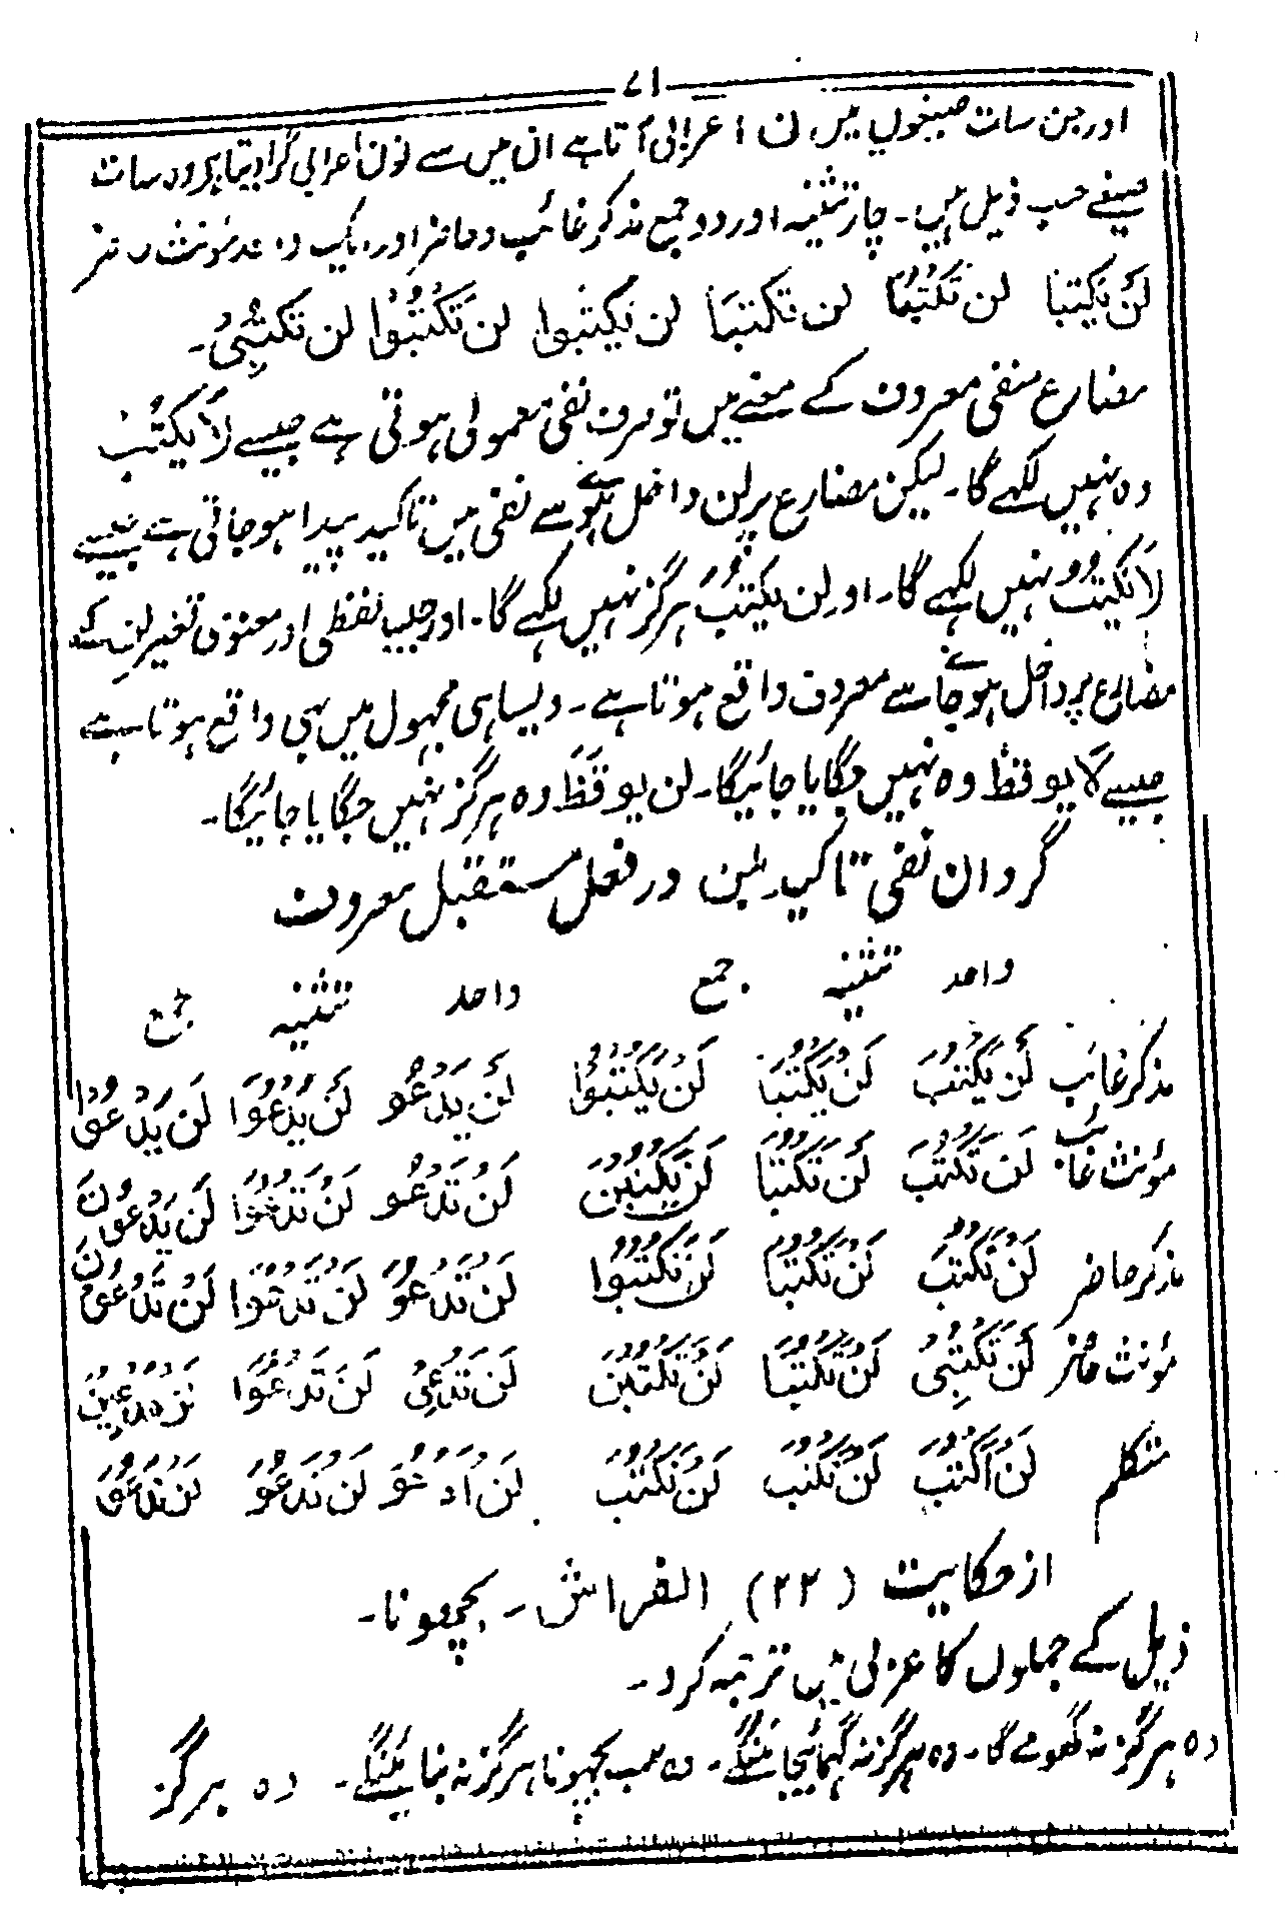 ۷۱
اور جن سات صیغوں میں ن اعرابی آتا ہے ان میں سے نون اعرابی گرا دیتا ہے وہ سات
صیغے حسب ذیل ہیں۔ چار تثنیہ اور دو جمع مذکر غائب و حاضر اور ایک واحد مؤنث حاضر
لَنْ یَکْتُبَا لن تَکْتُبَا لن تکتبَا لن یکتبوا لن تَکْتُبُوْا لن تکتُبِیْ۔
مضارع منفی معروف کے معنے میں تو صرف نفی معمولی ہوتی ہے جیسے لَا یَکْتُبُ
وہ نہیں لکہے گا۔ لیکن مضارع پر لن داخل ہونے سے نفی میں تاکید پیدا ہو جاتی ہے جیسے
لَا یَکْتُبُ وہ نہیں لکہے گا۔ اور لن یکتُبَ ہرگز نہیں لکہے گا۔ اور جیسا لفظی اور معنوی تغیر لن کے
مضارع پر داخل ہو جانے سے معروف واقع ہوتا ہے۔ ویسا ہی مجہول میں بہی واقع ہوتا ہے
جیسے لَا یوقظُ وہ نہیں جگایا جائیگا۔ لن یوقَظَ وہ ہرگز نہیں جگایا جائیگا۔
گردان نفی تاکید بلن در فعل مستقبل معروف
واحد تثنیہ جمع واحد تثنیہ جمع
مذکر غائب لَنْ یَّکْتُبَ لَنْ یَّکْتُبَا لَنْ یَّکْتُبُوْا لَنْ یَدْعُوَ لَنْ یَدْعُوَا لَنْ یَدْعُوْا
مؤنث غائب لَنْ تَکْتُبَ لَنْ تَکْتُبَا لَنْ یَکْتُبْنَ لَنْ تَدْعُوَ لَنْ تَدْعُوَا لَنْ یَدْعُوْنَ
مذکر حاضر لَنْ تَکْتُبَ لَنْ تَکْتُبَا لَنْ تَکْتُبُوْا لَنْ تَدْعُوَ لَنْ تَدْعُوَا لَنْ تَدْعُوْنَ
مؤنث حاضر لَنْ تَکْتُبِیْ لَنْ تَکْتُبَا لَنْ تَکْتُبْنَ لَنْ تَدْعِیْ لَنْ تَدْعُوَا
متکلم لَنْ اَکْتُبَ لَنْ نَکْتُبَ لَنْ نَکْتُبَ لَنْ اَدْعُوَ لَنْ نَدْعُوَ لَنْ نَدْعُوَ
از حکایت (۲۲) الفراش۔ بچھونا۔
ذیل کے جملوں کا عربی میں ترجمہ کرو۔
وہ ہرگز نہ گھومے گا۔ وہ ہرگز نہ گہمائے جائینگے۔ وہ سب بچہونا ہرگز نہ بنائینگے۔ وہ ہرگز